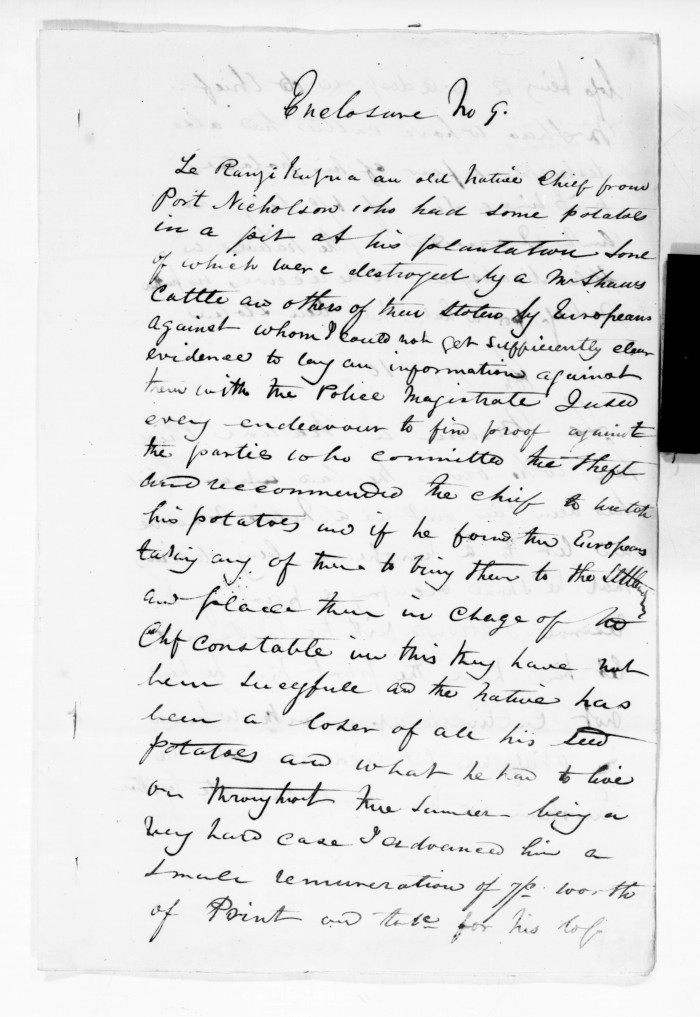 Enclosure No 9.
Te Rangi an old Native Chief from
Port Nicholson who had some potatoes
in a pit at his plantation Some
of which were destroyed by a Mr Shaws
Cattle and others of them stolen by Europeans
against whom I could not get sufficiently clear
evidence to lay an information against
them with the Police Magistrate I used
every endeavour to find proof against
the parties who committed the theft
and reccommended the chief to watch
his potatoes and if he found the Europeans
taking any of them to bring them to the
and place them in Charge of the
Chf Constable in this they have not
been sucessfull and the Native has
been a loser of all his seed
potatoes and what he had to live
on throughout the Sumer being a
very hard case I advanced him a
small remuneration of 7/- worth
of Print and for his loss